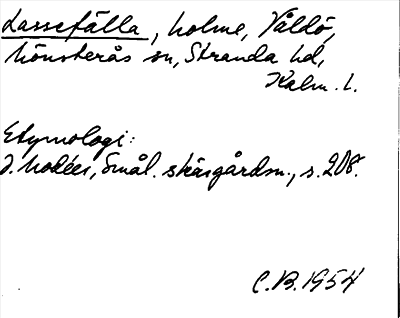 Lassefälla, holme, Våldö,
Mönsterås sn, Stranda hd,
Kalm. l.
Etymologi:
J. Modéer, Smål. skärgårdsn., s. 208.
C.B. 1954